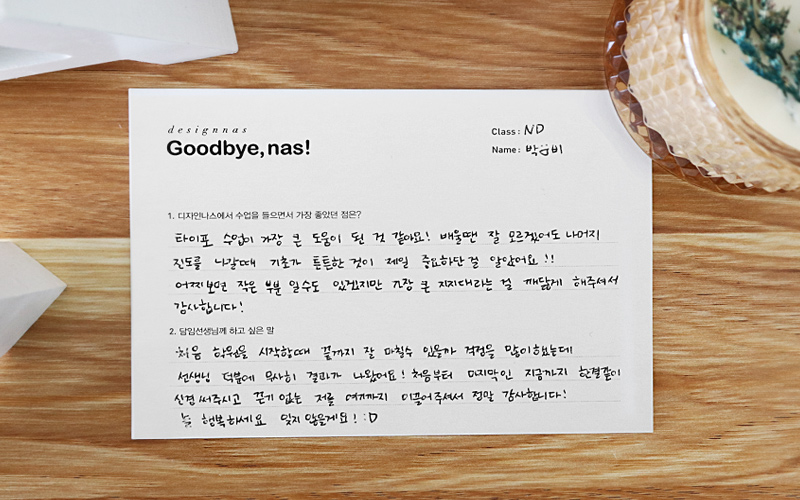 designnas
Goodbye, nas!
Class: ND
Name: 박 비
1. 디자인나스에서 수업을 들으면서 가장 좋았던 점은?
타이포 수업이 가장 큰 도움이 된 것 같아요! 배울땐 잘 모르겠어도 나머지
진도를 나갈때 기초가 튼튼한 것이 제일 중요하단 걸 알았어요!!
어찌보면 작은 부분 일수도 있겠지만 가장 큰 지지대라는 걸 깨닫게 해주셔서
감사합니다!
2. 담임선생님께 하고 싶은 말
처음 학원을 시작할때 끝까지 잘 마칠수 있을까 걱정을 많이했는데
선생님 덕분에 무사히 결과가 나왔어요! 처음부터 마지막인 지금까지 한결같이
신경써주시고 끈기 없는 저를 여기까지 이끌어주셔서 정말 감사합니다!
늘 행복하세요 잊지 않을게요! :D